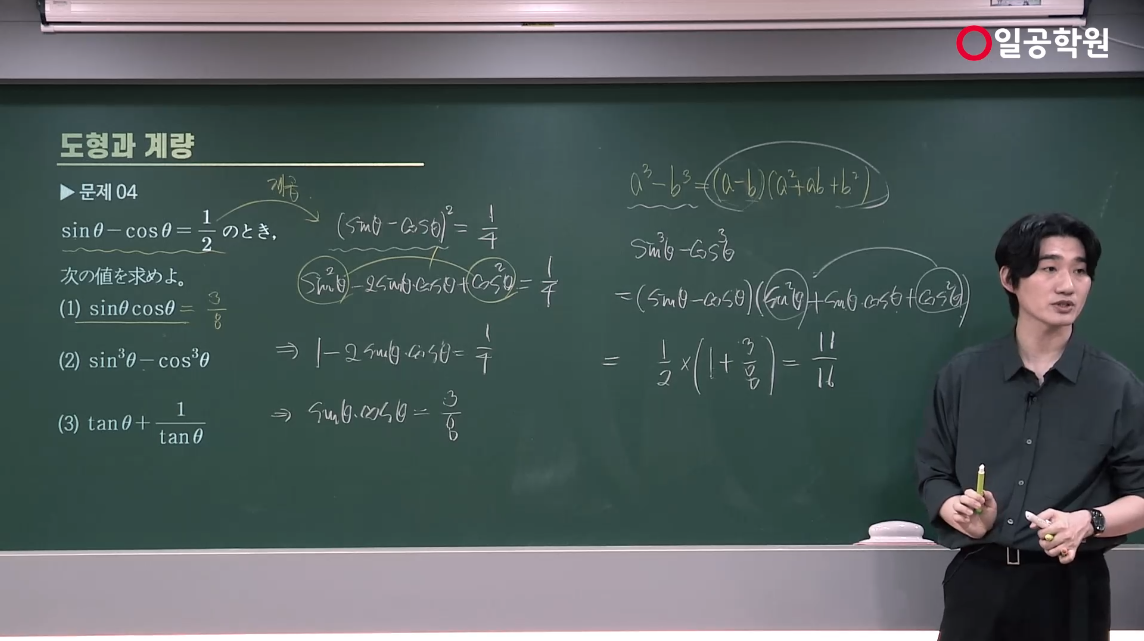 일공학원
도형과 계량
▶ 문제 04
sinθ − cosθ = 1/2 のとき,
次の値を求めよ。
(1) sinθcosθ = 3/8
(2) sin³θ − cos³θ
(3) tanθ + 1/tanθ
제곱.
(sinθ − cosθ)² = 1/4
sin²θ − 2sinθ·cosθ + cos²θ = 1/4
⇒ 1 − 2sinθ·cosθ = 1/4
⇒ sinθ·cosθ = 3/8
a³ − b³ = (a − b)(a² + ab + b²)
sin³θ − cos³θ
= (sinθ − cosθ)(sin²θ + sinθ·cosθ + cos²θ)
= 1/2 × (1 + 3/8) = 11/16